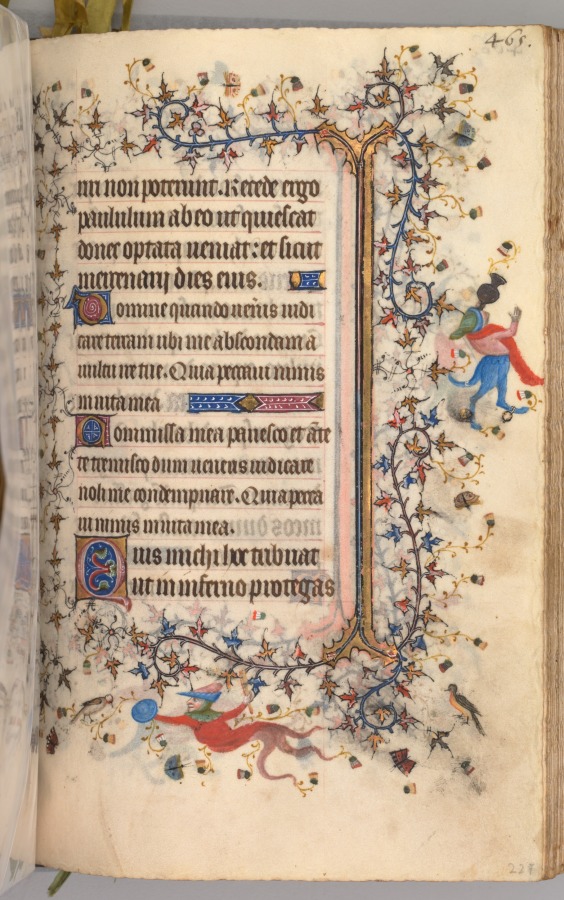 465.
ni non poterunt. Recede ergo
paululum ab eo ut quiescat
donec optata ueniat: et sicut
mercenarij dies eius.
Domine quando ueneris iudi
care terram ubi me abscondam a
uultu ire tue. Quia peccaui nimis
in uita mea
Commissa mea pauesco et ante
te eremisco dum ueneris iudicare
noli me condempnare. Quia pecca
ui nimis in uita mea.
Quis michi hoc tribuat
ut in inferno protegas